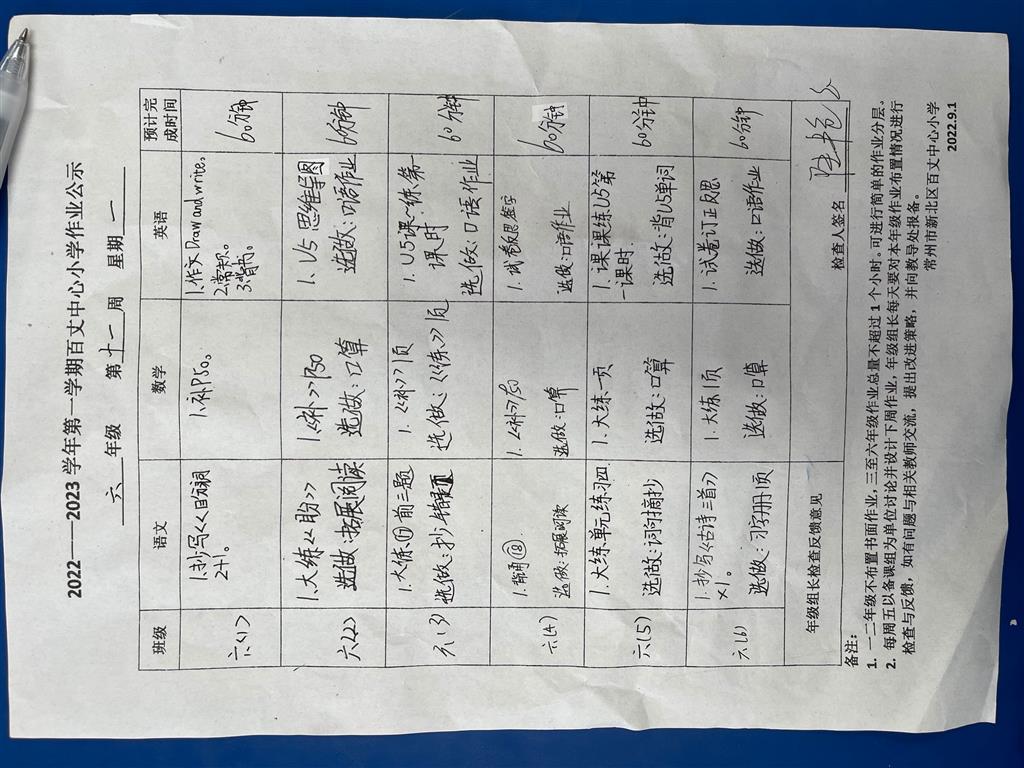 2022——2023 学年第一学期百丈中心小学作业公示
六 年级 第 十一 周 星期 一
班级 语文 数学 英语 预计完成时间
六(1) 1.抄写<<目>>词 2+1。 1.补P50。 1.作文Draw and write。 2.常规。 3.背书。 60分钟
六(2) 1.大练<<盼>> 选做:拓展阅读 1.<<补>>P50 选做:口算 1. U5 思维导图 选做:口语作业 60分钟
六(3) 1.大练⑰前三题 选做:抄错题 1.<<补>>1页 选做:<<练>>1页 1. U5课课练第一课时 选做:口语作业 60分钟
六(4) 1.背诵⑱ 选做:拓展阅读 1.<<补>>P50 选做:口算 1.试卷 签字 选做:口语作业 60分钟
六(5) 1.大练单元练习四 选做:词句摘抄 1.大练一页 选做:口算 1.课课练U5第一课时 选做:背U5单词 60分钟
六(6) 1.抄写<<古诗三首>> ×1。 选做:习字册1页 1.大练1页 选做:口算 1.试卷订正反思 选做:口语作业 60分钟
年级组长检查反馈意见 检查人签名
备注:
1. 一二年级不布置书面作业,三至六年级作业总量不超过 1 个小时。可进行简单的作业分层。
2. 每周五以备课组为单位讨论并设计下周作业,年级组长每天要对本年级作业布置情况进行
检查与反馈,如有问题与相关教师交流,提出改进策略,并向教导处报备。
常州市新北区百丈中心小学
2022.9.1